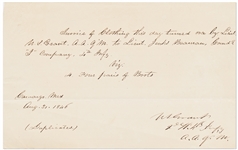 Invoice of Clothing this day turned over by Lieut
U S Grant, A. A. Q M. to Lieut
Company, 4th Infy
Viz
4 Four pairs of Boots
Camargo Mex
Aug. 20. 1846
(Duplicates)
U S Grant
2d Lt 4th Infy
A. A. Q M.